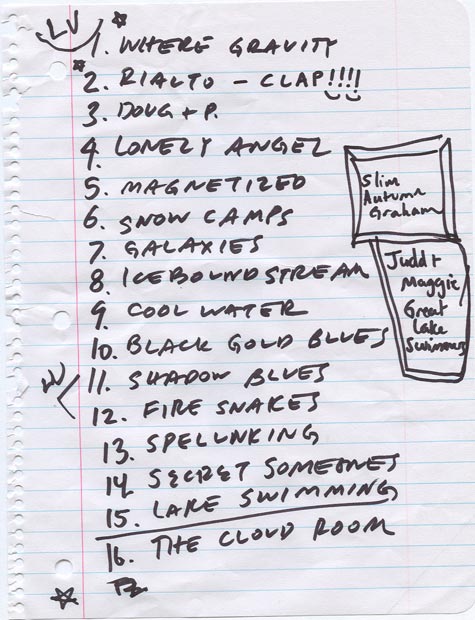 LV
1. WHERE GRAVITY
2. RIALTO - CLAP!!!!
3. DOUG + P.
4. LONELY ANGEL
5. MAGNETIZED
6. SNOW CAMPS
7. GALAXIES
8. ICEBOUND STREAM
9. COOL WATER
10. BLACK GOLD BLUES
LV
11. SHADOW BLUES
12. FIRE SNAKES
13. SPELUNKING
14 SECRET SOMEONES
15. LAKE SWIMMING
16. THE CLOUD ROOM
Slim
Autumn
Graham
Judd +
Maggie
Great
Lake
Swimmers